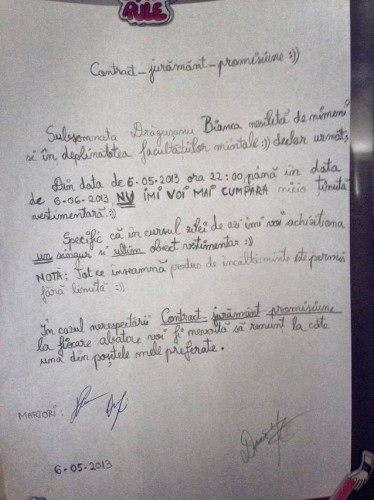 RULE
Contract_jurământ_promisiune :))
Subsemnata Drăgușanu Bianca nesilită de nimeni
și în deplinătatea facultăților mintale :)) declar următ.
Din data de 6-05-2013 ora 22:00, până în data
de 6-06-2013 NU ÎMI VOI MAI CUMPĂRA nicio ținută
vestimentară :))
Specific că în cursul zilei de azi îmi voi achiziționa
un singur și ultim obiect vestimentar :))
NOTĂ: Tot ce înseamnă produs de încălțăminte este permis
fără limită :))
În cazul nerespectării Contract jurământ promisiune
la fiecare abatere voi fi nevoită să renunț la câte
una din poșetele mele preferate.
MARTORI:
6-05-2013